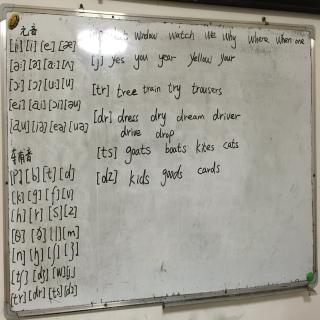 元音
[i:] [i] [e] [æ]
[ə:] [ə] [ɑ:] [ʌ]
[ɔ:] [ɔ] [u:] [u]
[ei] [ai] [ɔi] [əu]
[au] [iə] [eə] [uə]
辅音
[p] [b] [t] [d]
[k] [g] [f] [v]
[h] [r] [s] [z]
[θ] [ð] [l] [m]
[n] [ŋ] [ʃ] [ʒ]
[tʃ] [dʒ] [w] [j]
[tr] [dr] [ts] [dz]
window watch we why where when one
[j] yes you year yellow your
[tr] tree train try trousers
[dr] dress dry dream driver
drive drop
[ts] goats boats kites cats
[dz] kids goods cards